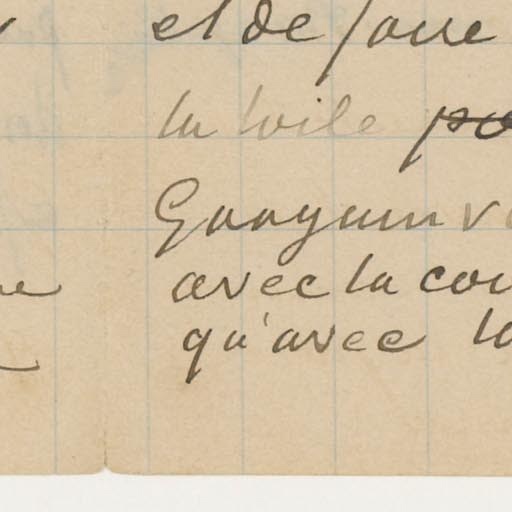 et de faire
la toile
Gauguin
avec la cou
qu'avec la